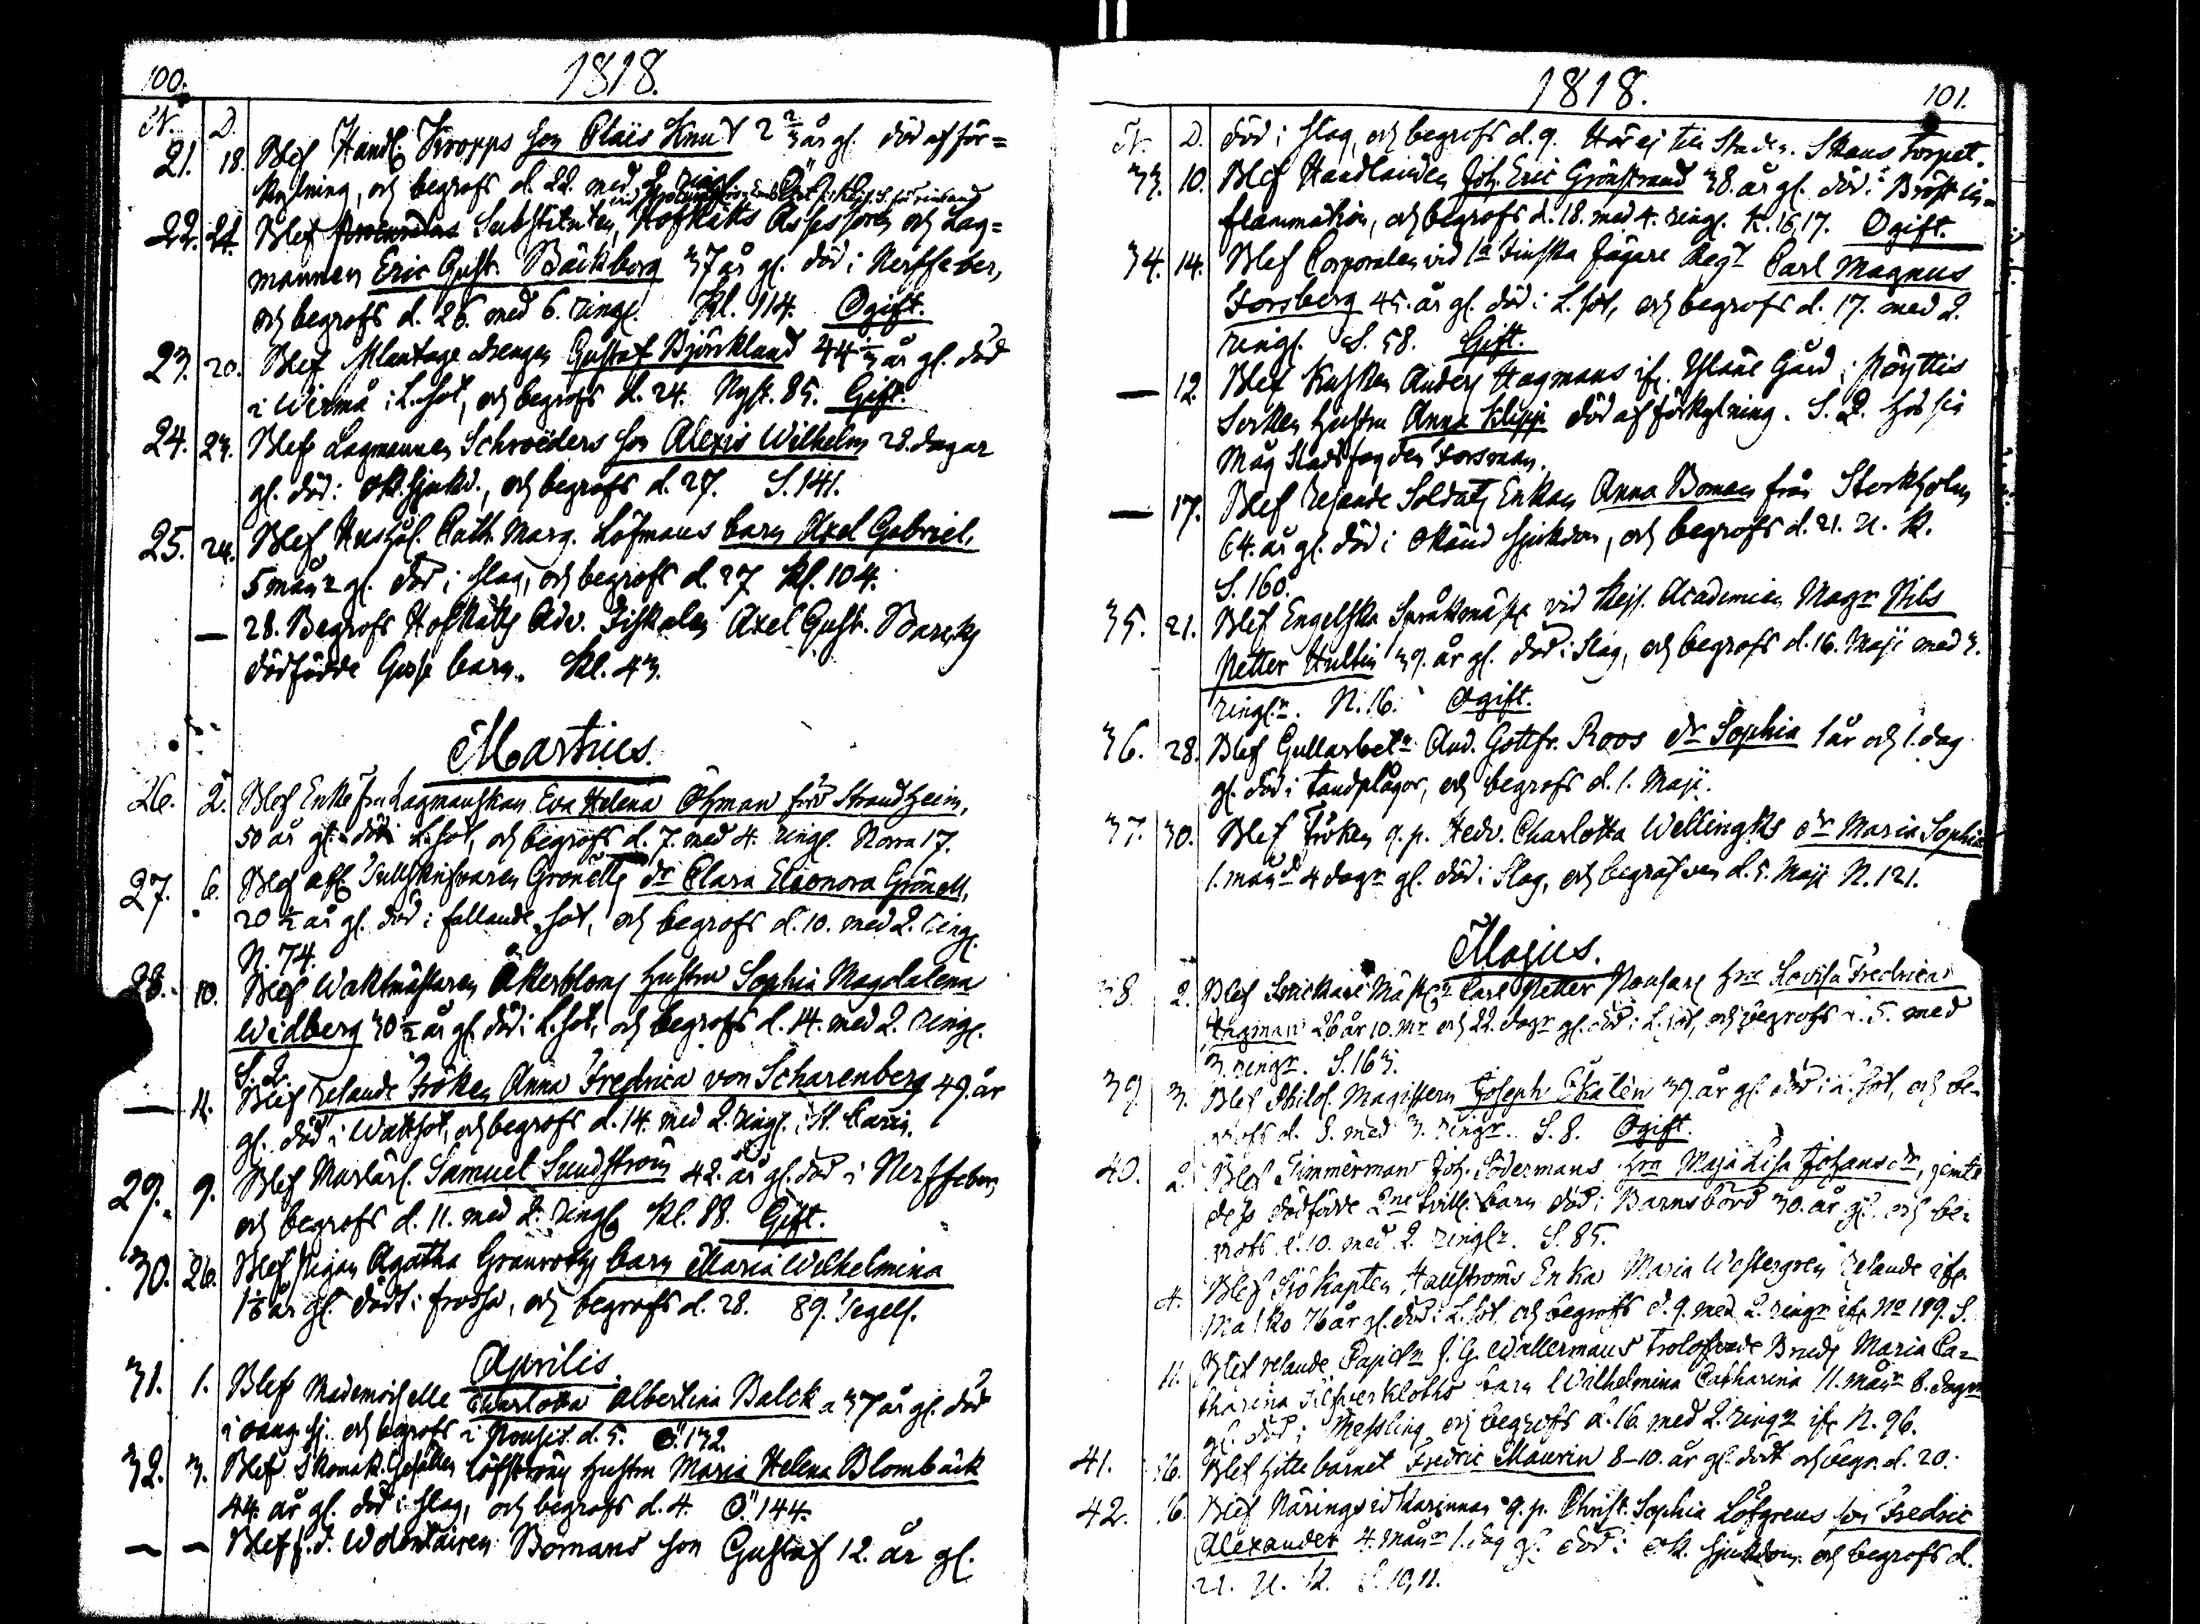 100.
1818.
N. D.
21. 18. Blef Handl. Kropps son Claës Knut 2 2/3 år gl. död af för=
kylning, och begrofs d. 22. med 2. ringl.
22. 21. Blef Substituten, Hofrätts Assessoren och Lag=
mannen Eric Gust. Bäckborg 37 år gl. död i Nerffeber,
och begrofs d. 26. med 6. ringl. Kl. 114. Ogift.
23. 20. Blef Plantage drengen Gustaf Björklund 44 år gl. död
i Wirmå i L. sot, och begrofs d. 24. Nyst. 85. Gift.
24. 23. Blef Lagmannen Schroëders son Alexis Wilhelm 28. dagar
gl. död i ok. sjukd., och begrofs d. 27. S. 141.
25. 24. Blef Hushål. Cath. Marg. Löfmans barn Axel Gabriel,
5 mån.r gl. död i slag, och begrofs d. 27 Kl. 104.
— 28. Begrofs Hofrätts Adv. Fiskalen Axel Gust.
dödfödde Gosse barn. Kl. 43.
Martius.
26. 2. Blef Enkefru Lagmanskan Eva Helena Öhman född Strandheim,
50 år gl. död i L. sot, och begrofs d. 7. med 4. ringl. Norra 17.
27. 6. Blef afl. Tullskrifvaren Grönells dr Clara Eleonora Grönell,
20 1/2 år gl. död i fallande sot, och begrofs d. 10. med 2. ringl.
N. 74.
28. 10. Blef Waktmästaren Åkerbloms hustru Sophia Magdalena
Widberg 30 1/2 år gl. död i L. sot, och begrofs d. 14. med 2. ringl.
S. 2.
— 11. Blef resande Fröken Anna Fredrica von Scharenberg 49. år
gl. död i Wattsot, och begrofs d. 14. med 2. ringl. i St. Carin.
29. 9. Blef Samuel Sundström 42. år gl. död i Nerffeber,
och begrofs d. 11. med 2. ringl. Kl. 88. Gift.
30. 26. Blef Pigan Agatha Granroths barn Maria Wilhelmina
år gl. dödt i frossa, och begrofs d. 28. 89.
Aprilis.
31. 1. Blef Mademoiselle Charlotta Albertina Balck 37 år gl. död
i och begrofs i d. 5. Ö. 132.
32. 3. Blef Skomak. Gesällen Löfströms hustru Maria Helena Blombäck
44. år gl. död i slag, och begrofs d. 4. Ö. 144.
— — Blef Bomans son Gustaf 12. år gl.
1818. 101.
N. D. död i slag, och begrofs d. 9. Hör ej till Staden. Skans Torpet.
33. 10. Blef Handlanden Joh. Eric Grönstrand 38. år gl. död i Bröst in=
flammation, och begrofs d. 18. med 4. ringl. K. 16, 17. Ogift.
34. 14. Blef Corporalen vid 1a Finska Jägare Regt Carl Magnus
Forsberg 45. år gl. död i L. sot, och begrofs d. 17. med 2.
ringl. S. 58. Gift.
— 12. Blef Kusken Anders Hagmans ifr. Ylåne Gård i Pöyttis
Socken hustru Anna Klippi död af förkylning. S. 2. hos sin
Måg Stadsfogden Forsman.
— 17. Blef resande Soldats Enkan Anna Boman från Stockholm
64. år gl. död i okänd sjukdom, och begrofs d. 21. u. k.
S. 160.
35. 21. Blef Engelska Språkmäst. vid Kejs. Academien Magr Nils
Petter Hultin 39. år gl. död i slag, och begrofs d. 16. Maji med 3.
ringl.r. N. 16. Ogift.
36. 28. Blef Gullarbet.r And. Gottfr. Roos dr Sophia 1 år och 1. dag
gl. död i tandplågor, och begrofs d. 1. Maji.
37. 30. Blef Fröken q.p. Hedv. Charlotta Wellingks dr Maria Sophia
1. månd 4 dagr gl. död i slag, och begrafven d. 5. Maji N. 121.
Majus.
38. 2. Blef Carl Petter hru Lovisa Fredrica
Hagman 26 år 10. mr och 22. dagr gl. död i L. sot, och begrofs d. 5. med
3. ringr. S. 163.
39. 3. Blef Philos. Magistern Joseph 39. år gl. död i L. sot, och be=
grofs d. 8. med 3. ringr. S. 8. Ogift.
40. 2. Blef Timmerman Joh. Södermans hru Maja Lisa Johansdr, jemte
dess dödfödde 2ne barn död i Barnsbörd 30. år gl. och be=
grofs d. 10. med 2. ringlr. S. 85.
4. Blef Sjö Kapten Hallströms Enka Maria Westergren resande ifr.
76 år gl. död i L. sot, och begrofs d. 9. med 2. ringr ifr No 199. S.
11. Blef resande J. G. Wallermans trolofvade Bruds Maria Ca=
tharina Silfverkloths barn Wilhelmina Catharina 11. månr 8. dagr
gl. död i Messling, och begrofs d. 16. med 2. ringr ifr N. 96.
41. 16. Blef hittebarnet Fredric Maurin 8-10. år gl. dödt och begr. d. 20.
42. 16. Blef Näringsidkarinnan q.p. Christ. Sophia Löfgrens son Fredric
Alexander 4. månr 1. dag gl. död i ok. sjukdom och begrofs d.
21. u. k. S. 10, 11.